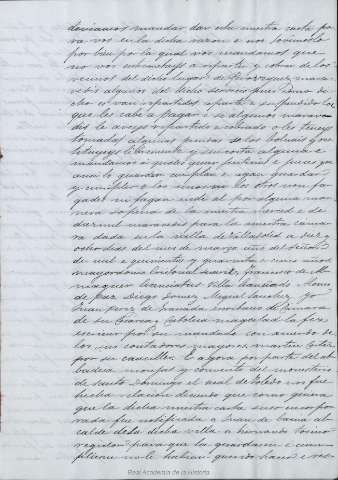 deviamos mandar dar esta nuestra carta pa
ra vos en la dicha razon e nos tovimoslo
por bien por la qual vos mandamos que
no vos entremetays a repartir y cobrar de los
vecinos del dicho lugar de mara
vedis algunos del dicho servicio pues como di
cho es van repartidos aparte e sin perjuicio lo
que les cabe a pagar e si algunos marave
dis le aveys repartido e cobrado o les teneys
tomadas algunas prendas se los bolvais y res
tituyays libremente y sin costa alguna e
mandamos a qualesquier justicias e juezes que
ansi lo guarden cumplan e agan guardar
y cumplir e los unos ni los otros non fa
gades ni fagan ende al por alguna ma
nera so pena de la nuestra merced e de
diez mil maravedis para la nuestra cama
ra dada en la villa de Valladolid a diez
ocho dias del mes de marzo año del Señor
de mil e quinientos y quarenta e cinco años
mayordomo Cristoval Suarez, francisco de Al
maguer licenciatus
de Paz Diego Gomez Miguel Sanchez Yo
Juan Perez de Granada escribano de Camara
de sus Cesarea e Catolica magestad la fice
escrevir por su mandado con acuerdo de
los sus contadores mayores, martin Ortiz
por su canciller. E agora por parte del
abadesa monjas y convento del monesterio
de santo Domingo el real de Toledo nos fue
hecha relacion diciendo que como quiera
que la dicha nuestra carta suso encorpo
rada fue notificada a al
calde desa dicha villa e hernando
regidor para que la guardasen e cum
pliesen no lo habian querido hacer e
Real Academia de la Historia